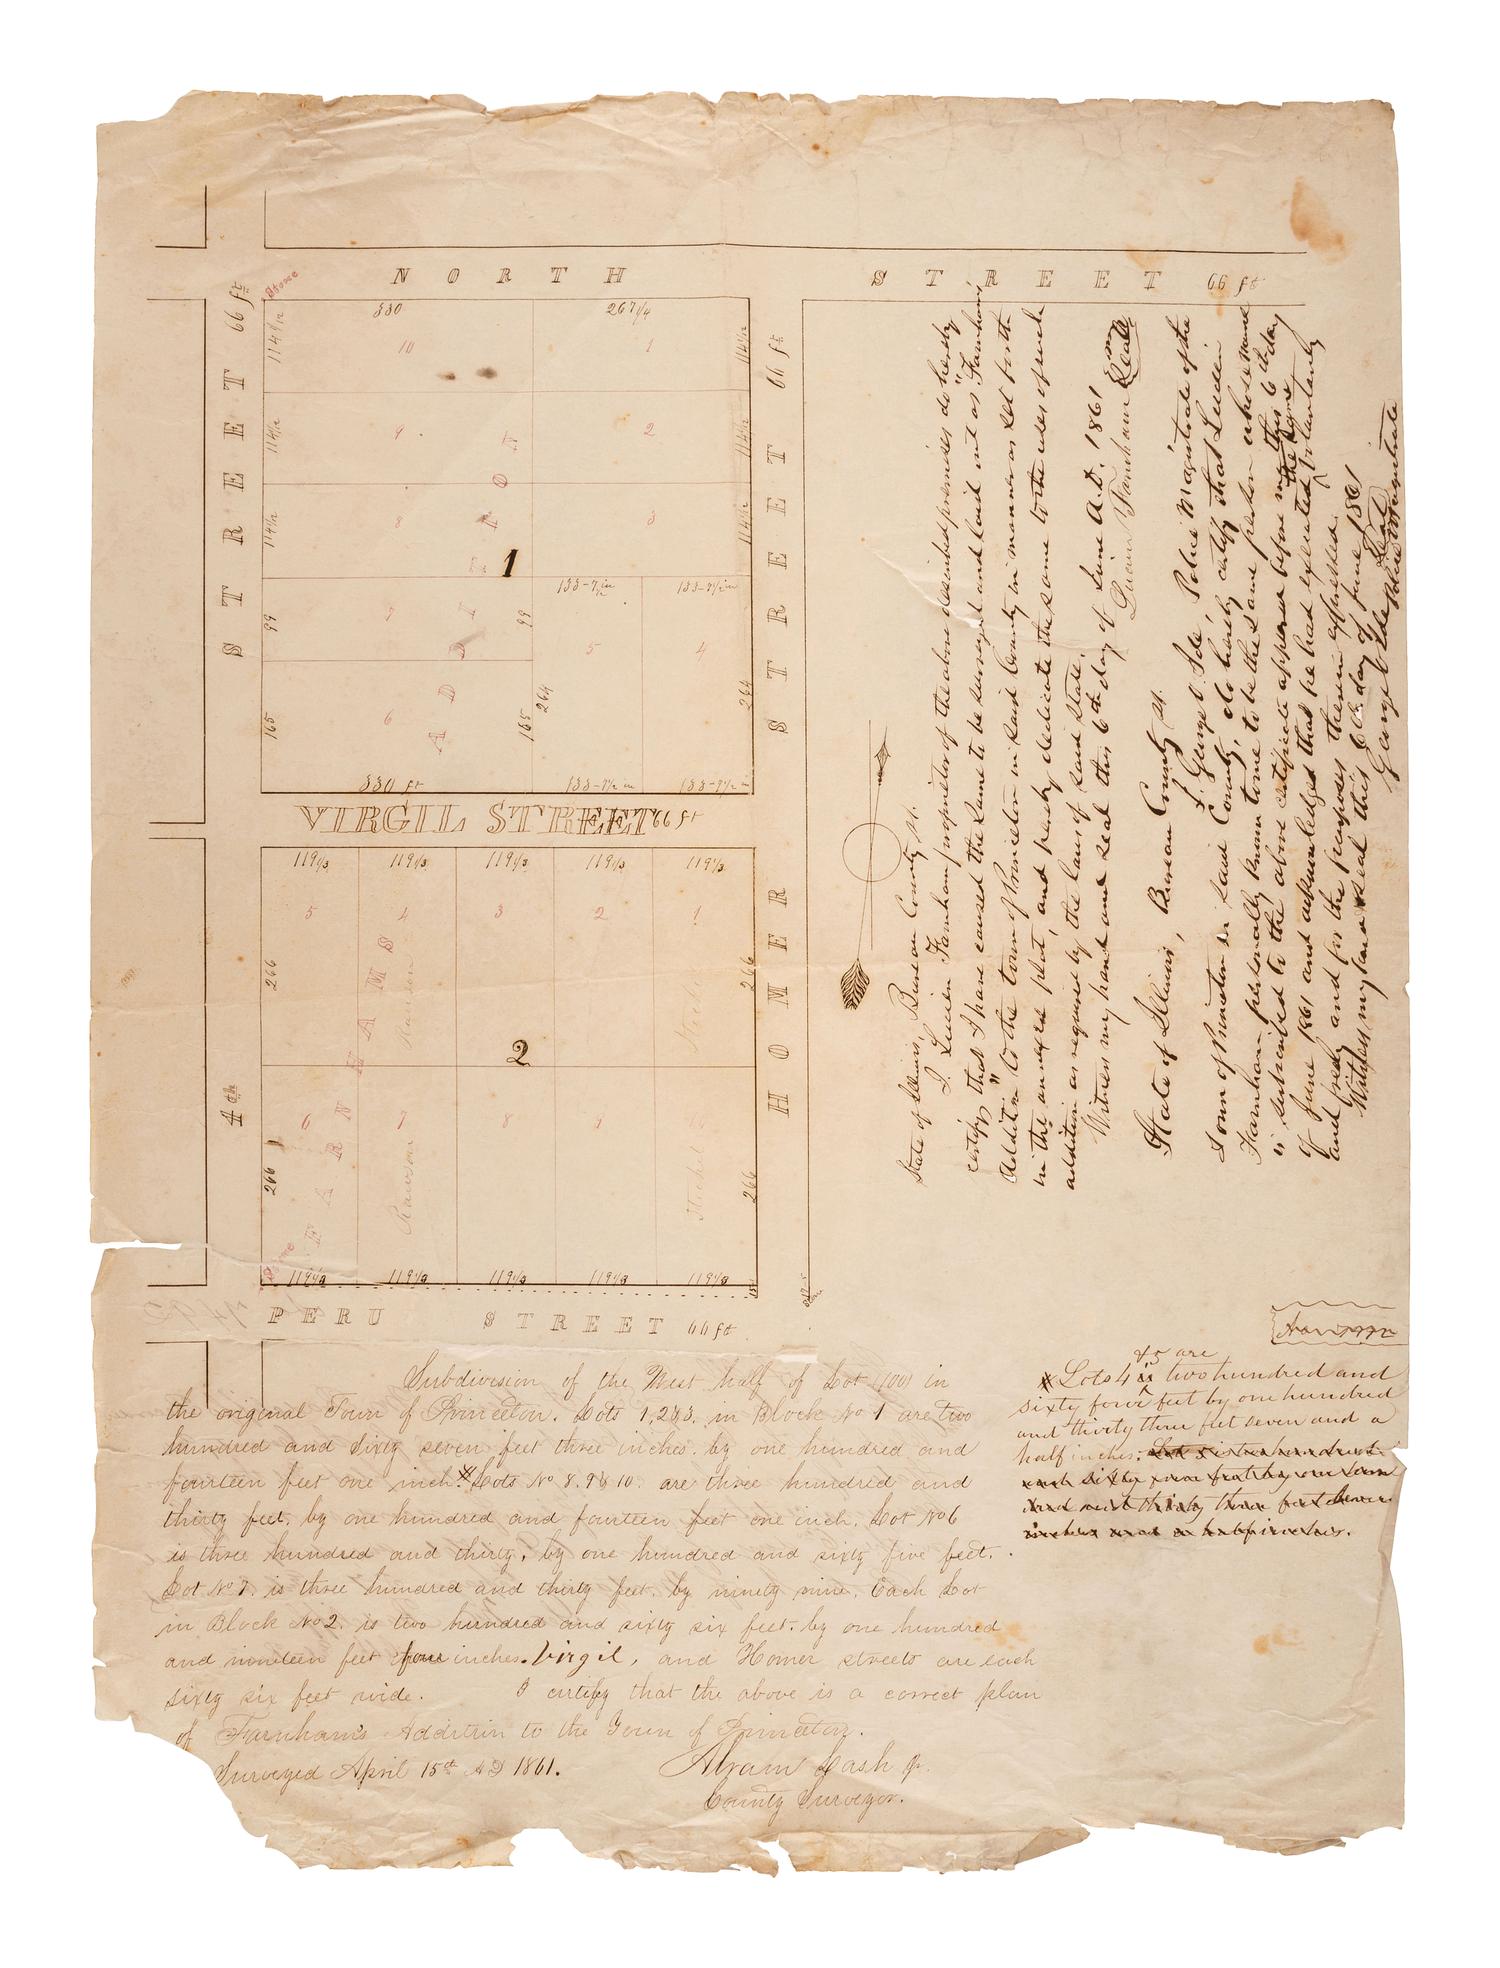 NORTH STREET 66 ft
STREET 66 ft
Stone
330
267 1/4
114 1/12
10
1
114 1/12
66 ft
114 1/12
9
2
114 1/12
114 1/12
8
3
114 1/12
1
133-7 1/2 in
133-7 1/2 in
99
7
99
5
4
165
6
165
264
264
ADDITION
330 ft
133-7 1/2 in
133-7 1/2 in
VIRGIL STREET 66 ft
119 1/3
119 1/3
119 1/3
119 1/3
119 1/3
5
4
3
2
1
266
266
2
6
7
8
9
266
266
FARNHAMS
4th
HOMER STREET
Stone
119 1/3
119 1/3
119 1/3
119 1/3
119 1/3
PERU STREET 66 ft
Subdivision of the West half of Lot (100) in
the original Town of Princeton. Lots 1, 2 & 3. in Block No 1 are two
hundred and sixty seven feet three inches. by one hundred and
fourteen feet one inch. Lots No 8. 9 & 10. are three hundred and
thirty feet, by one hundred and fourteen feet one inch. Lot No 6
is three hundred and thirty, by one hundred and sixty five feet.
Lot No 7. is three hundred and thirty feet. by ninety nine. Each Lot
in Block No 2. is two hundred and sixty six feet. by one hundred
and nineteen feet four inches. Virgil, and Homer streets are each
sixty six feet wide. I certify that the above is a correct plan
of Farnham's Addition to the Town of Princeton.
Surveyed April 15th AD 1861.
County Surveyor.
& 5 are
Lots 4 two hundred and
sixty four feet by one hundred
and thirty three feet seven and a
half inches.
State of Illinois, Bureau County ss.
I Lucien Farnham proprietor of the above described premises do hereby
certify that I have caused the same to be surveyed and laid out as "Farnham's
Addition" to the town of Princeton in said County in manner as set forth
in the annexed plat, and hereby dedicate the same to the uses of such
addition as required by the laws of said State.
Witness my hand and seal this 6th day of June A.D. 1861
Lucien Farnham Seal
State of Illinois, Bureau County ss.
I, George Police Magistrate of the
Town of Princeton in said County, do hereby certify that Lucien
Farnham personally known to me to be the same person whose name
is subscribed to the above certificate appeared before me this 6th day
of June 1861 and acknowledged that he had executed the same voluntarily
and freely and for the purposes therein expressed.
Witness my hand & seal this 6th day of June 1861
George Seal
Police Magistrate